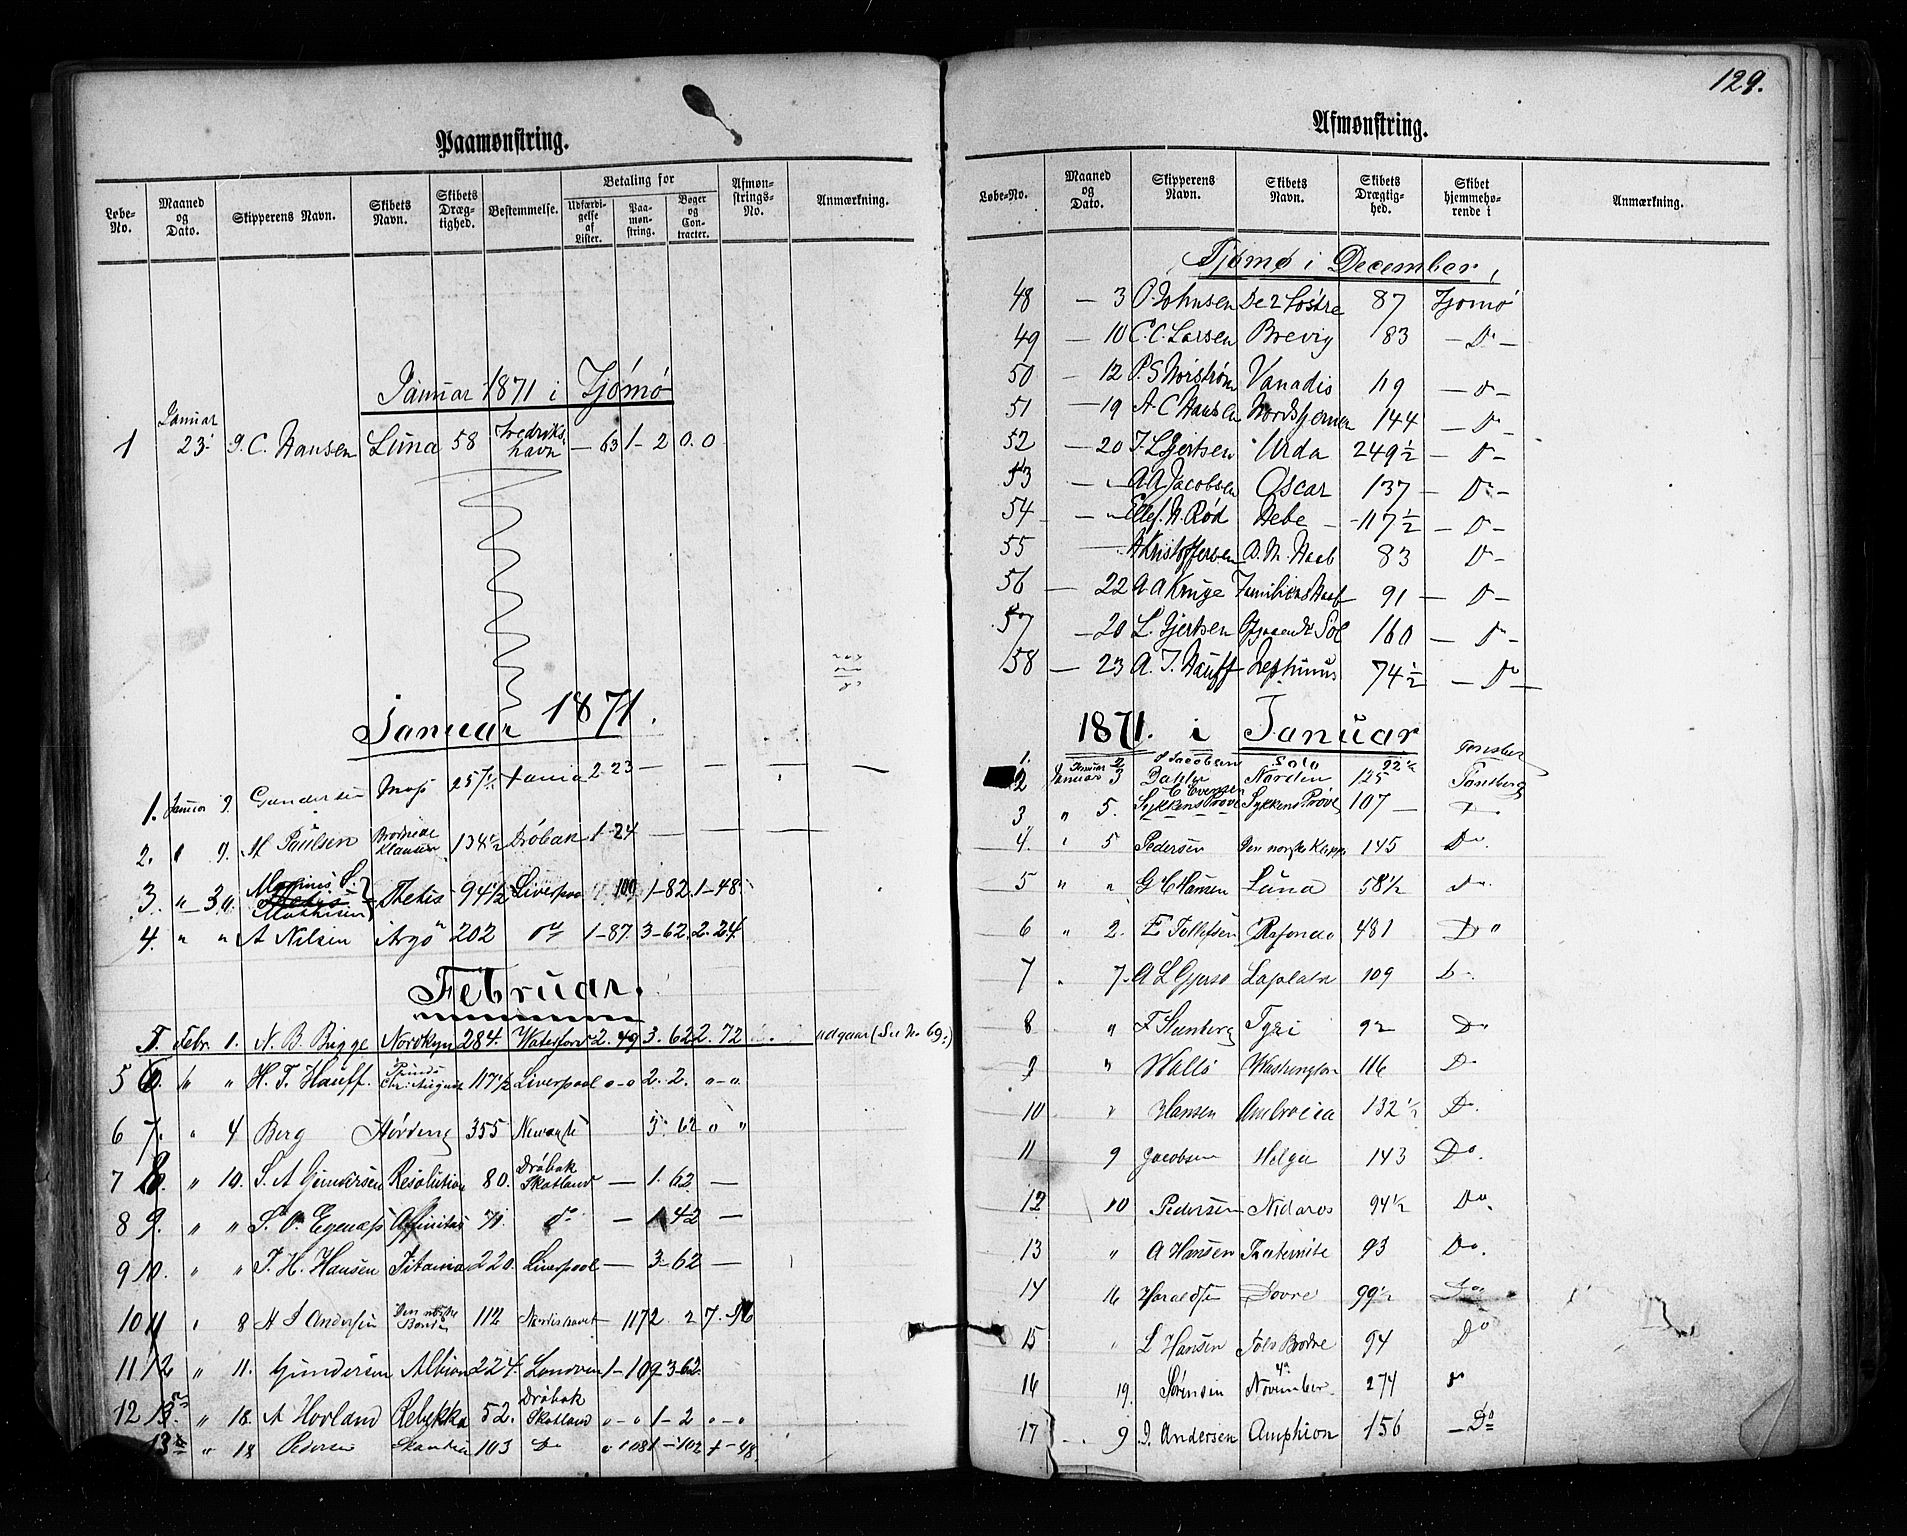 Paamønstring.
Løbe-No. Maaned og Dato. Skipperens Navn. Skibets Navn. Skibets Dræg-tighed. Bestemmelse. Betaling for Udfærdi-gelse af Lister. Paa-møn-string. Bøger og Con-tracter. Afmøn-strings-No. Anmærkning.
Januar 1871 i Tjømø
1 Januar 23. C. Hansen Luna 58 Fredriks-havn — 63 1 — 2 0. 0
Januar 1871.
1. Januar 9. Gundersen 257½ 2-23 — — — —
2. " 9. A Paulsen 134½ Drøbak 1-24 — — —
3. " 3 " Mathisen Thetis 94½ Liverpool 100 1-82. 1-48
4. " " A Nilsen Argo 202 do 1-87. 3-62. 2.24
Februar.
5. Febr. 1. N. B. Bugge Nordkyn 284. Waterford 2.49 3.62 2.72 udgaar (See No 69.)
5 6. " " H. T. Hauff. Prinds Chr. August 117½ Liverpool 0-0 2.2. 0-0.
6 7. " 4 Berg 355 3. 62 " "
7 8. " 10. S. A Gundersen Resolution 80. Drøbak Skotland — 1.62 —
8 9. " " S. O. Egenæs Affinitas 71. do — 1 42 —
9 10. " " T. H. Hansen Titania 220. Liverpool — 3-62 —
10 11 " 8 A Andersen Den norske 112
11 12 " 11. Gundersen Albion 224. London 1-109-3-62.
12 13. " 18. A Hovland Rebekka 52. Drøbak Skotland 0-0 1-2 0-0
13 " 18 Pedersen 103 Do
129.
Afmønstring.
Løbe-No. Maaned og Dato. Skipperens Navn. Skibets Navn. Skibets Drægtig-hed. Skibet hjemmehø-rende i Anmærkning.
Tjømø i December,
48 — 3 O. Johnsen De 2 Søstre 87 Tjømø
49 — 10 C. C. Larsen Brevig 83 — Do —
50 — 12 P. S Norstrøm Vanadis 119 — Do —
51 — 19 A C Hansen Nordstjernen 144 — Do —
52 — 20 Gjertsen Urda 249½ — Do —
53 — " A A Jacobsen Oscar 137 — Do —
54 — " Ellef. N. Rød Hebe — 117½ — Do —
55 — Kristoffersen A. M. Haab 83 Do —
56 — 22 A A Kruge Familiens Haab 91 — Do —
57 — 20 L. Gjertsen Sol 160 — Do —
58 — 23 A. T. Hauff Neptunus 74½ — Do —
1871. i Januar
1. Januar 2 Jacobsen Solo 92½ Tønsberg
2 Januar 3 Dahler Norden 125 Tønsberg
3 " 5. C. Evensen Lykkens Prøve 107 — Do
4. " 5 Pedersen Den norske Klippe 145 Do.
5 " " G C Hansen Luna 58½ Do.
6 " 2. E Tollefsen 481 Do "
7 " 7. A L Gjersø Laplata 109 Do
8 " F Stenberg 92 Do
9 " Wallø Washington 116 Do
10 " Hansen Ambrosia 132½ Do.
11 9 Jacobsen Helga 143 Do.
12 10 Pedersen Nidaros 94½ Do.
13 " A Hansen Fraternite 93 Do.
14 16 Haraldsen Dovre 99½ Do
15 " L Hansen 94 Do
16 19. Sørensen 4de November. 274 Do
17 — 9 J. Andersen Amphion 156 — Do